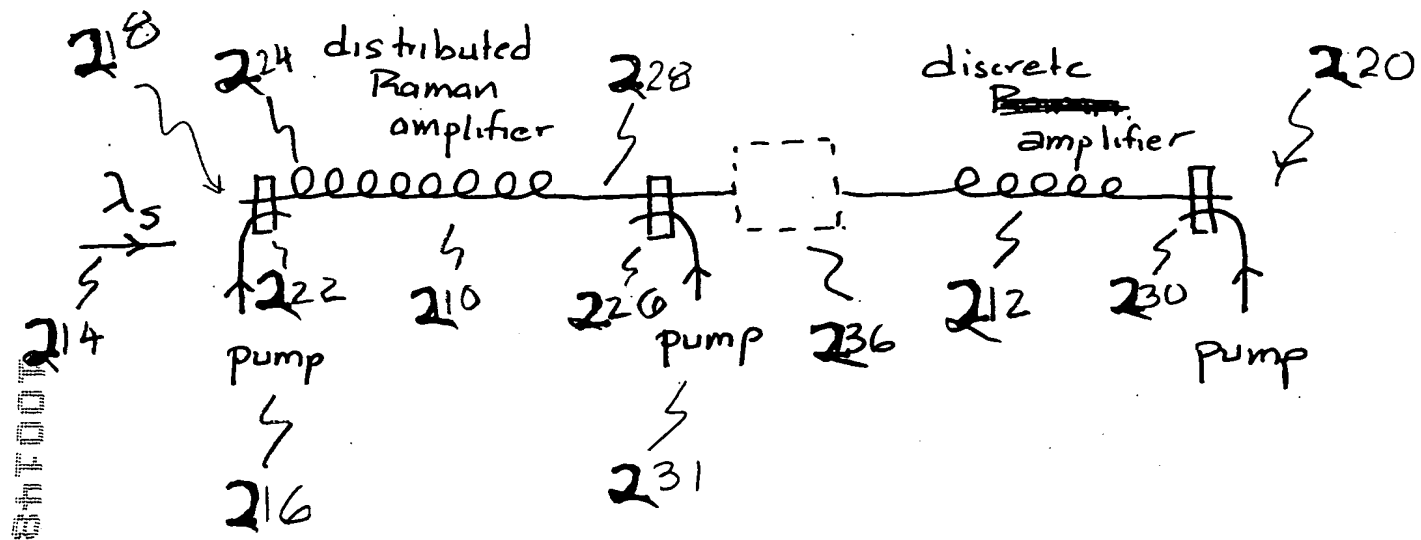 218
224
distributed
Raman
amplifier
228
discrete
amplifier
220
λs
214
222
210
226
236
212
230
pump
pump
pump
216
231